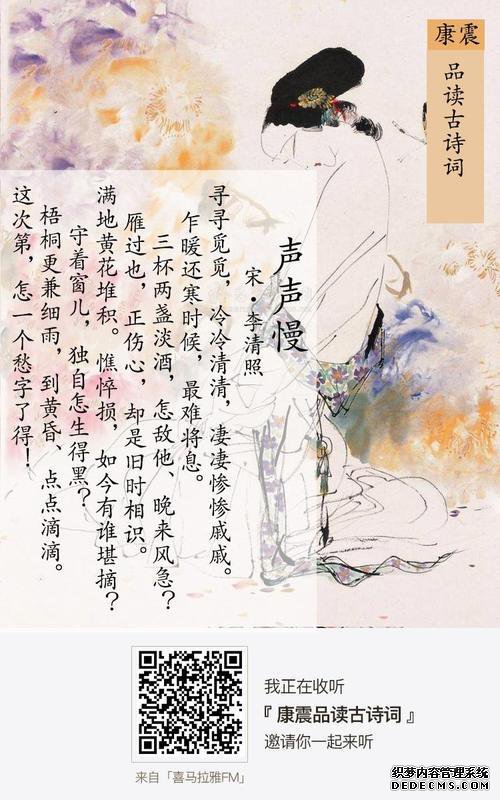 康震
品读古诗词
声声慢
宋·李清照
寻寻觅觅，冷冷清清，凄凄惨惨戚戚。
乍暖还寒时候，最难将息。
三杯两盏淡酒，怎敌他、晚来风急？
雁过也，正伤心，却是旧时相识。
满地黄花堆积。憔悴损，如今有谁堪摘？
守着窗儿，独自怎生得黑？
梧桐更兼细雨，到黄昏、点点滴滴。
这次第，怎一个愁字了得！
我正在收听
『 康震品读古诗词 』
邀请你一起来听
来自「喜马拉雅FM」
织梦内容管理系统
DEDECMS.COM